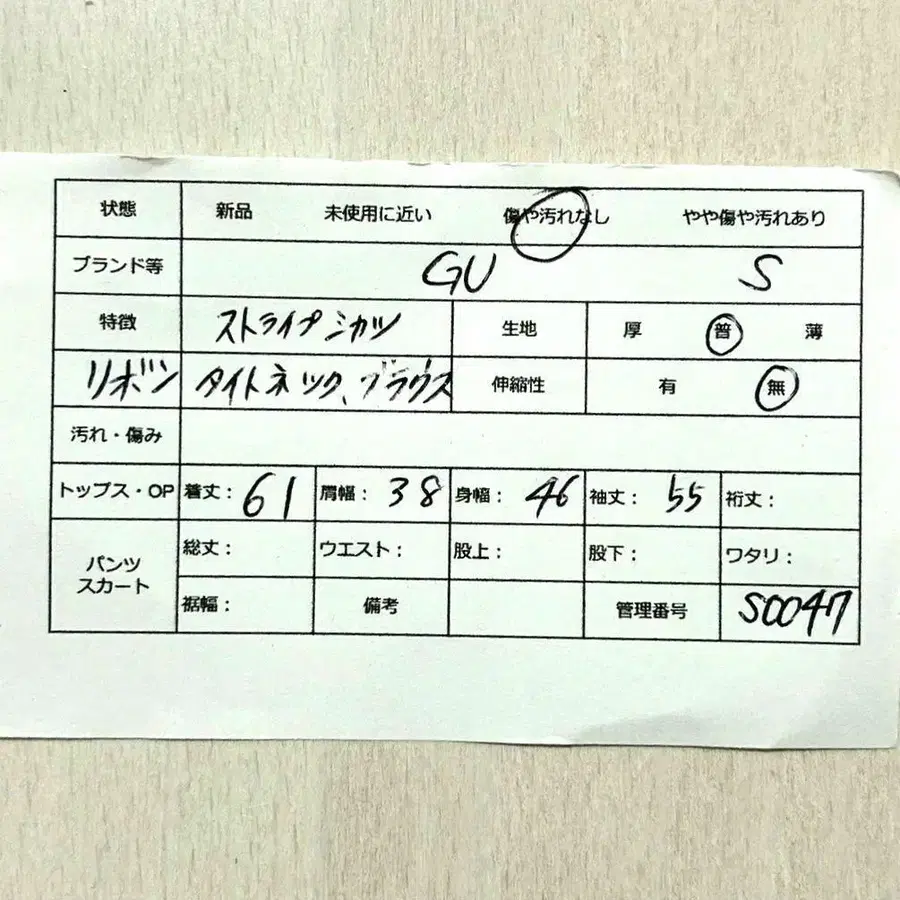 状態 新品 未使用に近い 傷や汚れなし やや傷や汚れあり
ブランド等 GU S
特徴 ストライプシャツ 生地 厚 普 薄
リボン タイトネック、ブラウス 伸縮性 有 無
汚れ・傷み
トップス・OP 着丈： 61 肩幅： 38 身幅： 46 袖丈： 55 裄丈：
パンツ スカート 総丈： ウエスト： 股上： 股下： ワタリ：
裾幅： 備考 管理番号 S0047